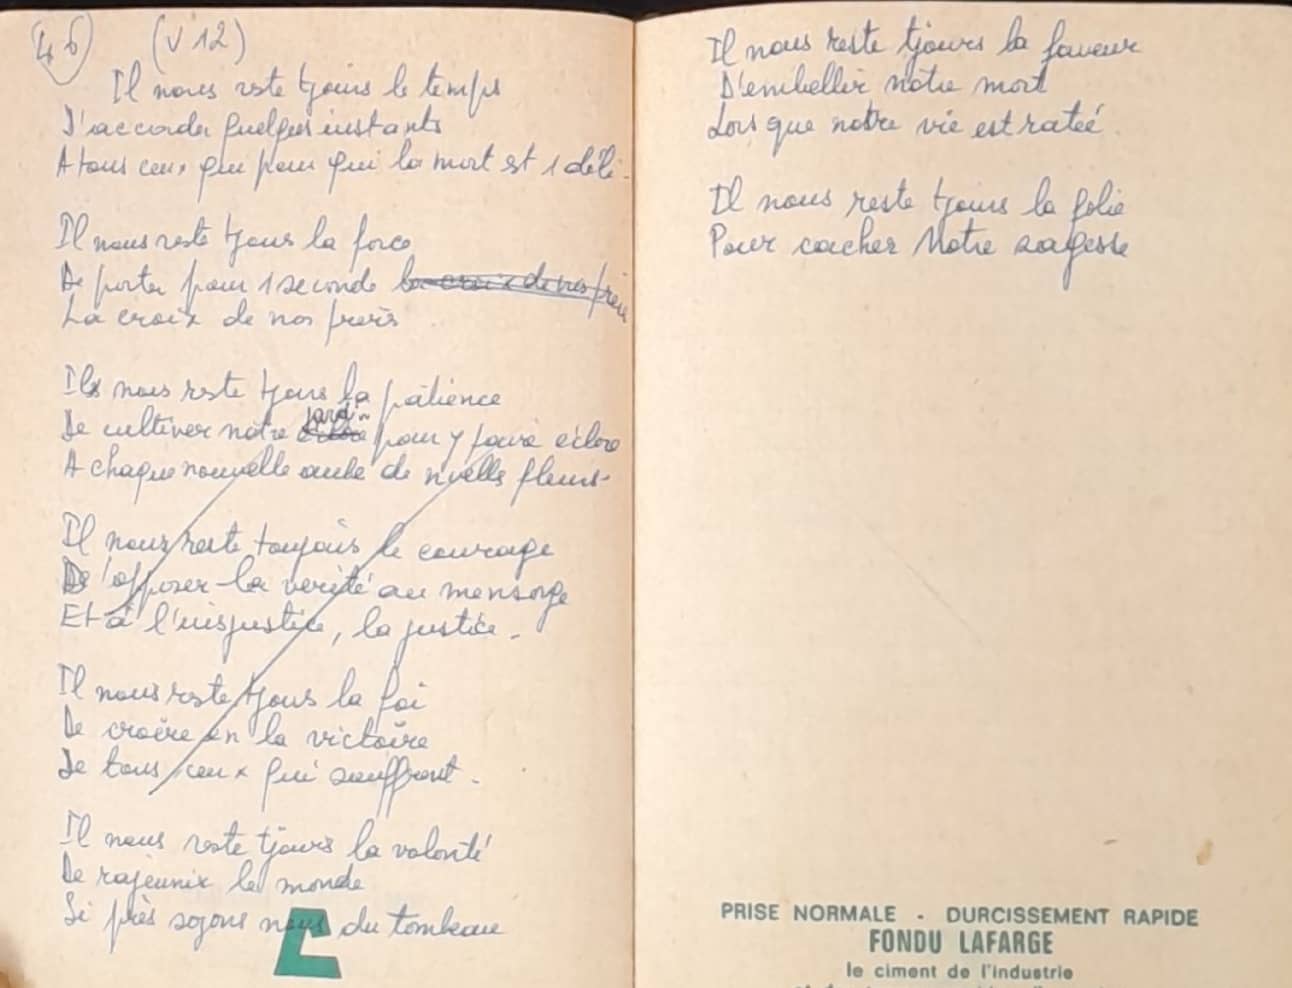 46 (V 12)
Il nous reste tjours le temps
D'accorder quelques instants
A tous ceux que pour qui la mort est 1 déli.
Il nous reste tjours la force
De porter pour 1 seconde la croix de nos frères
La croix de nos frères
Il nous reste tjours la patience
De cultiver notre jardin pour y faire éclore
A chaque nouvelle aube de nvelles fleurs.
Il nous reste toujours le courage
D'opposer la vérité au mensonge
Et à l'injustice, la justice.
Il nous reste tjours la foi
De croire en la victoire
De tous ceux qui souffrent.
Il nous reste tjours la volonté
De rajeunir le monde
Si près soyons nous du tombeau
Il nous reste tjours la faveur
D'embellir notre mort
Lorsque notre vie est ratée.
Il nous reste tjours la folie
Pour cacher Notre sagesse
PRISE NORMALE - DURCISSEMENT RAPIDE
FONDU LAFARGE
le ciment de l'industrie